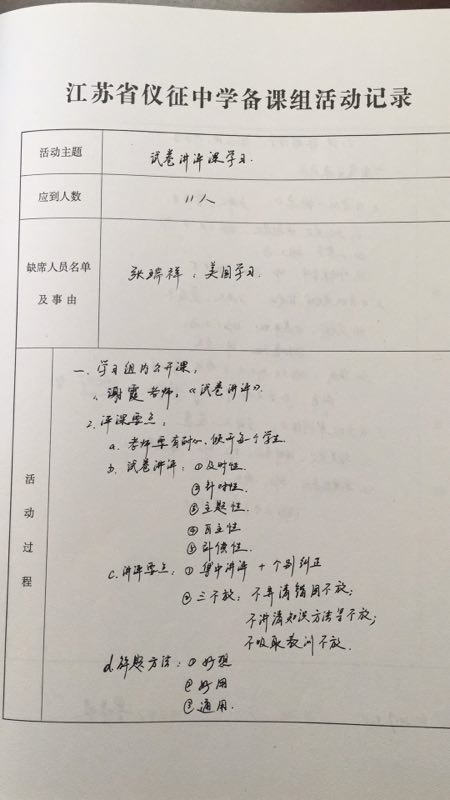 江苏省仪征中学备课组活动记录
活动主题 试卷讲评课学习.
应到人数 11人
缺席人员名单
及事由
张瑞祥:美国学习.
活动过程
一.学习组内公开课,
1.谢霞老师:《试卷讲评》.
2.评课要点:
a.老师要有耐心,便于每个学生.
b.试卷讲评:①及时性.
②针对性.
③主题性.
④自主性
⑤补偿性.
c.讲评要点:①集中讲评+个别纠正
②三不放:不弄清错因不放;
不讲清知识方法等不放;
不吸取教训不放.
d.解题方法:①好想
②好用
③通用.